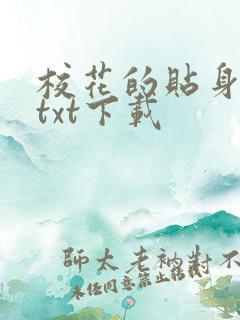 校花的貼身
txt下載
師太老衲對不
未任同意禁止轉載